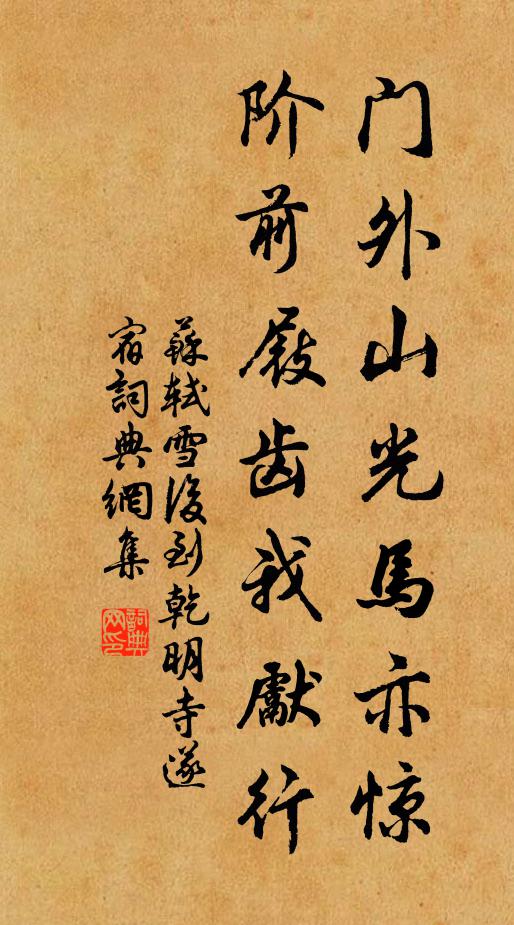 门外山光馬亦惊
阶前屐齿我獻行
蘇轼雪後到乾明寺遂
宿詞典網集
詞典
网印